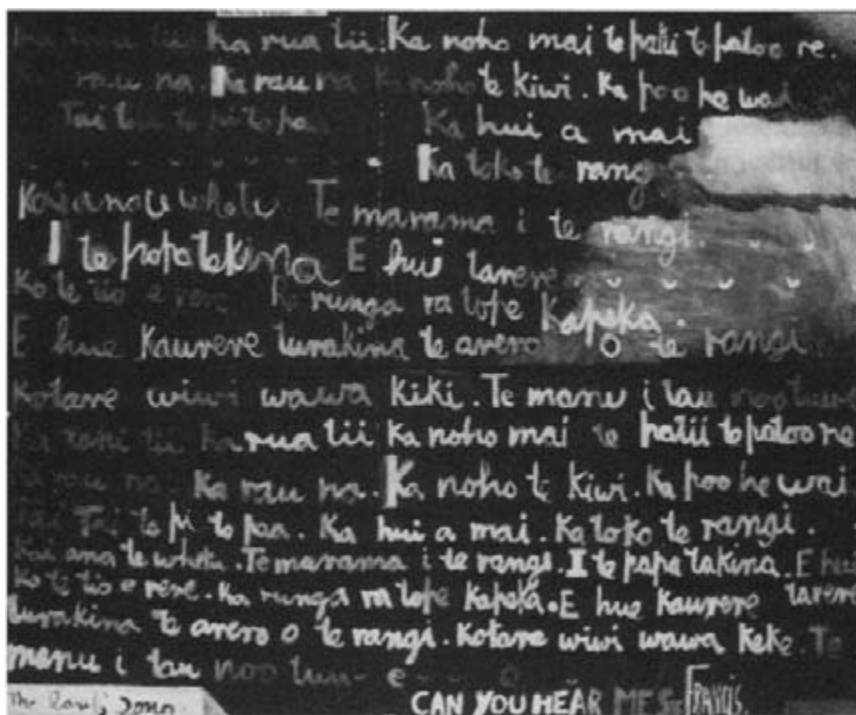 Ka tahi tii Ka rua tii. Ka noho mai te patii te patoo re.
rau na. Ka rau na Ka noho te kiwi. Ka poo he wai
Tai to te pi to paa Ka hui a mai
Ka toko te rang
whetu Te marama i te rangi.
I te papa tekina E hui tarere
Ko te tio e rere Ka runga ra tope Kapeka.
E hue Kaurere turakina te arero O te rangi
Kotare wiwi wawa Kiki. Te manu i tau
Ka tahi tii Ka rua tii Ka noho mai te patii te patoo re
Ka rau na. Ka rau na. Ka noho te Kiwi. Ka poo he wai.
Tai Tai to pi to paa. Ka hui a mai. Ka toko te rangi.
Kai ana te whetu. Te marama i te rangi. I te papa takina. E hui
Ko te tio e rere. Ka runga ra tope Kapeka. E hue Kaurere tarere
turakina te arero o te rangi. Kotare wiwi wawa Keke. Te
manu i tau noo tuu- e - - O
CAN YOU HEAR ME St FRANCIS.